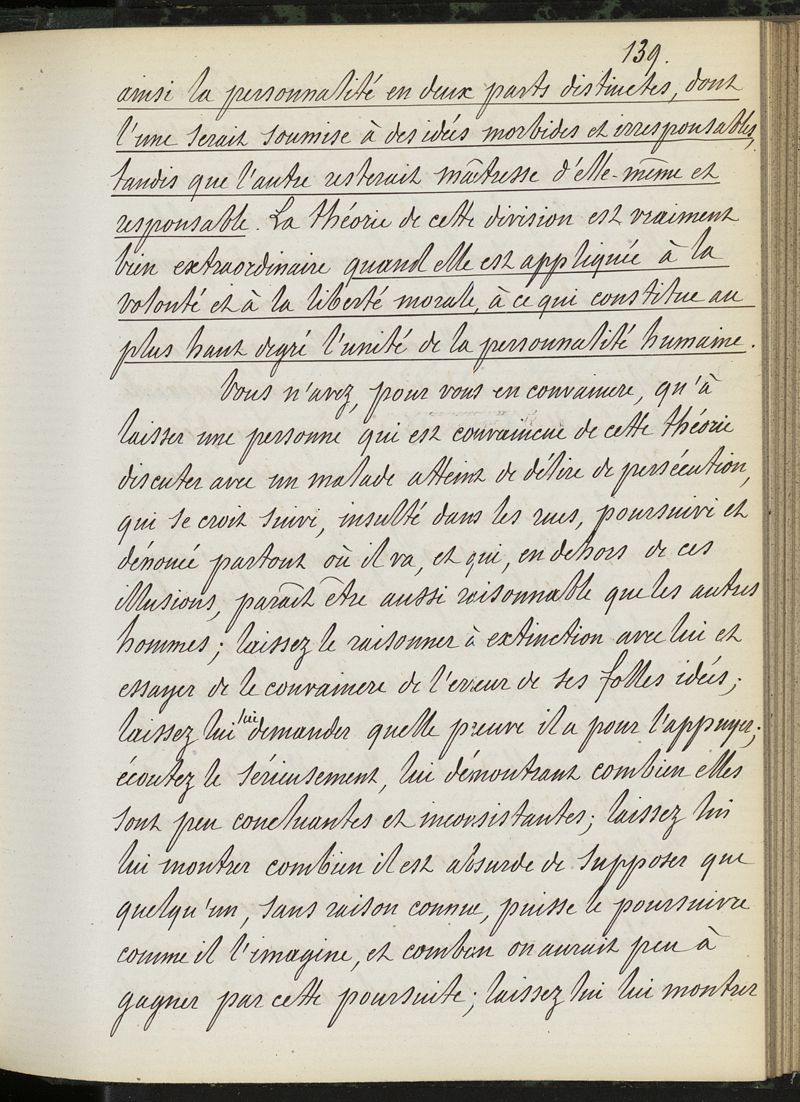 139.
ainsi la personnalité en deux parts distinctes, dont
l'une serait soumise à des idées morbides et irresponsables,
tandis que l'autre resterait maîtresse d'elle-même et
responsable. La théorie de cette division est vraiment
bien extraordinaire quand elle est appliquée à la
volonté et à la liberté morale, à ce qui constitue au
plus haut degré l'unité de la personnalité humaine.
Vous n'avez, pour vous en convaincre, qu'à
laisser une personne qui est convaincue de cette théorie
discuter avec un malade atteint de délire de persécution,
qui se croit suivi, insulté dans les rues, poursuivi et
dénoncé partout où il va, et qui, en dehors de ces
illusions, paraît être aussi raisonnable que les autres
hommes; laissez le raisonner à extinction avec lui et
essayer de le convaincre de l'erreur de ses folles idées;
laissez lui lui demander quelle preuve il a pour l'appuyer;
écoutez le sérieusement, lui démontrant combien elles
sont peu concluantes et inconsistantes; laissez lui
lui montrer combien il est absurde de supposer que
quelqu'un, sans raison connue, puisse le poursuivre
comme il l'imagine, et combien on aurait peu à
gagner par cette poursuite; laissez lui lui montrer